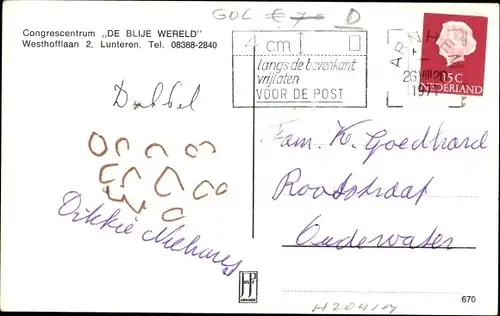 GDL € 7- D
Congrescentrum „DE BLIJE WERELD"
Westhofflaan 2, Lunteren. Tel. 08388-2840
4 cm
langs de bovenkant
vrijlaten
VOOR DE POST
26 VIII 20
1971
15 C
NEDERLAND
Dubbel
Fam. K. Goedhard
Rootstraat
Oudewater
Dikkie
JPs
ARNHEM
670
H2041M